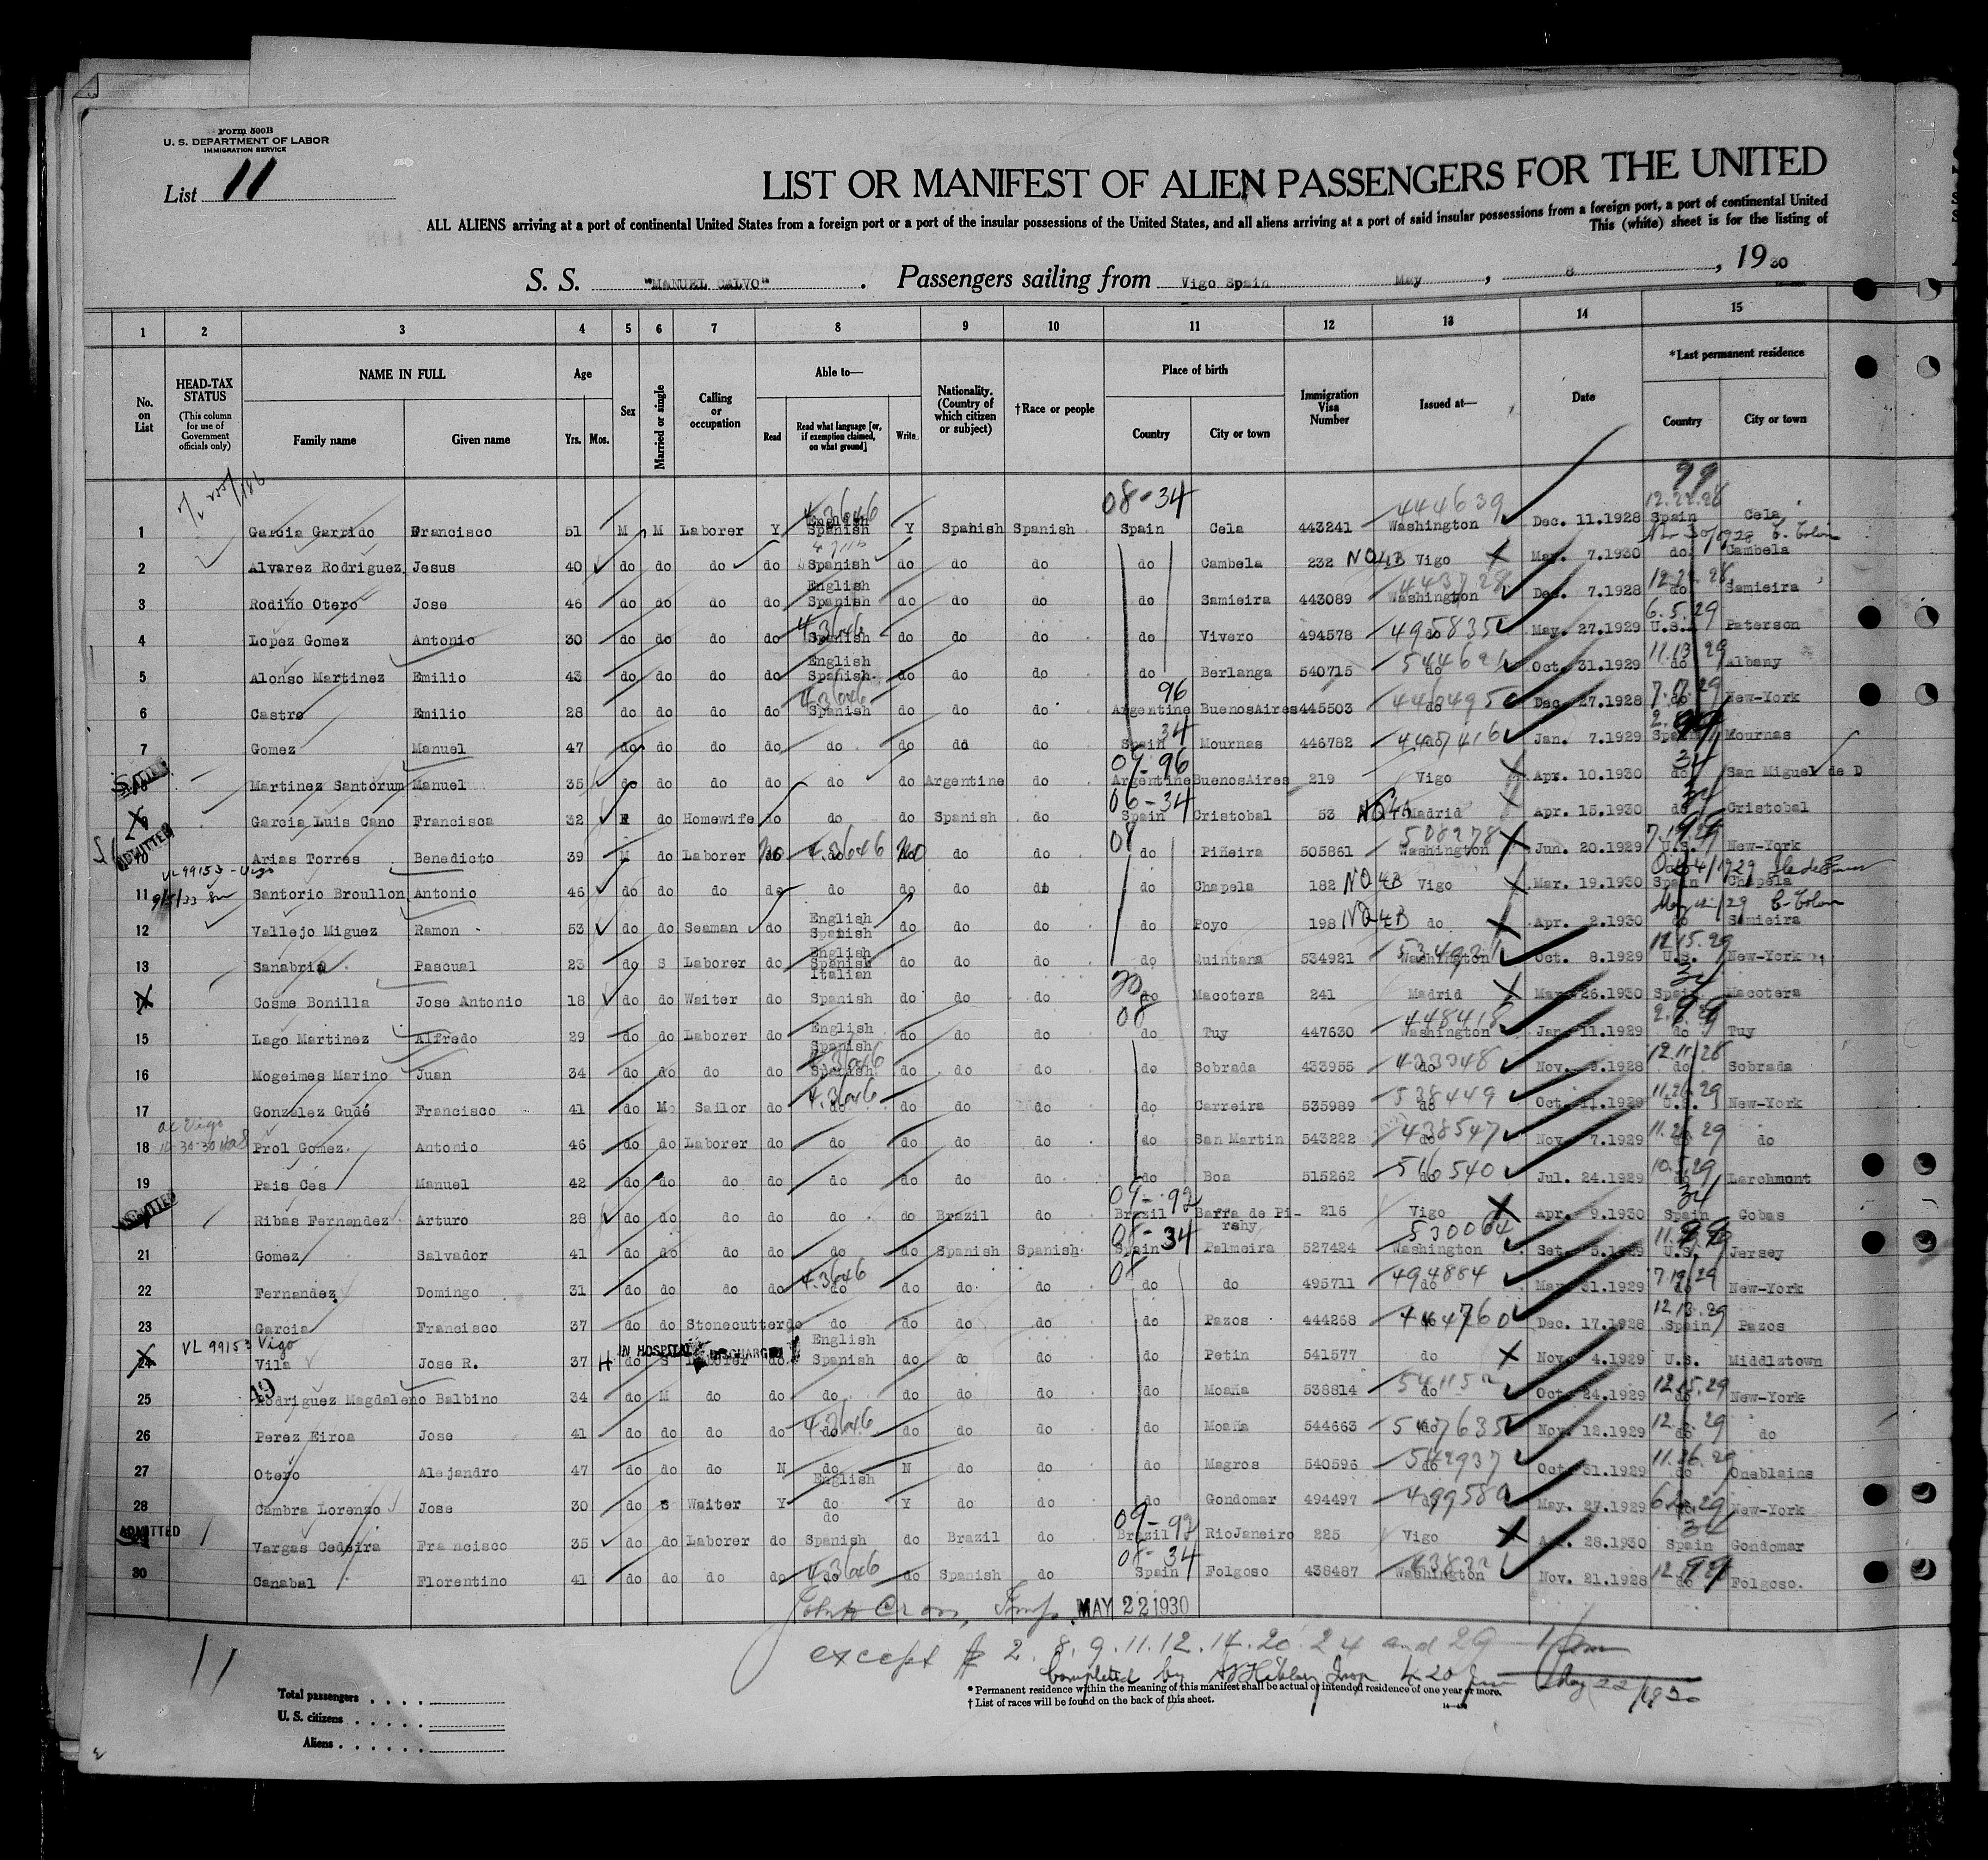 Form 500B
U. S. DEPARTMENT OF LABOR
IMMIGRATION SERVICE
List 11
LIST OR MANIFEST OF ALIEN PASSENGERS FOR THE UNITED
ALL ALIENS arriving at a port of continental United States from a foreign port or a port of the insular possessions of the United States, and all aliens arriving at a port of said insular possessions from a foreign port, a port of continental United
This (white) sheet is for the listing of
S. S. "MANUEL CALVO". Passengers sailing from Vigo Spain May, 8, 1930
1 2 3 4 5 6 7 8 9 10 11 12 13 14 15
No. on List
HEAD-TAX STATUS (This column for use of Government officials only)
NAME IN FULL Family name Given name
Age Yrs. Mos.
Sex
Married or single
Calling or occupation
Able to— Read Read what language [or, if exemption claimed, on what ground] Write
Nationality. (Country of which citizen or subject)
†Race or people
Place of birth Country City or town
Immigration Visa Number
Issued at—
Date
*Last permanent residence Country City or town
1 Garcia Garrido Francisco 51 M M Laborer Y English Spanish Y Spanish Spanish 08-34 Spain Cela 443241 444639 Washington Dec. 11.1928 99 12.22.28 Spain Cela
2 Alvarez Rodriguez Jesus 40 do do do do Spanish do do do do Cambela 232 NQ4B Vigo Mar. 7.1930 do Cambela
3 Rodiño Otero Jose 46 do do do do English Spanish do do do do Samieira 443089 443728 Washington Dec. 7.1928 do Samieira
4 Lopez Gomez Antonio 30 do do do do 4.3646 Spanish do do do do Vivero 494578 495835 do May. 27.1929 6.5.29 U.S. Paterson
5 Alonso Martinez Emilio 43 do do do do English Spanish do do do do Berlanga 540715 do Oct. 31.1929 11.13.29 do Albany
6 Castro Emilio 28 do do do do 4.3646 Spanish do do do 96 Argentine BuenosAires 445503 do Dec. 27.1928 do New-York
7 Gomez Manuel 47 do do do do do do do do 34 Spain Mournas 446782 do Jan. 7.1929 Spain Mournas
8 Martinez Santorum Manuel 35 do do do do do do Argentine do 09-96 Argentine BuenosAires 219 Vigo Apr. 10.1930 34 do San Miguel de D
9 Garcia Luis Cano Francisca 32 F do Homewife do do do Spanish do 06-34 Spain Cristobal 53 Madrid Apr. 15.1930 34 do Cristobal
ADMITTED
10 Arias Torres Benedicto 39 M do Laborer No 4.3646 do No do do 08 do Piñeira 505861 508278 Washington Jun. 20.1929 U.S. New-York
VL 99153 - Vigo
11 Santorio Broullon Antonio 46 do do do do do do do do do Chapela 182 NQ4B Vigo Mar. 19.1930 Spain Chapela
12 Vallejo Miguez Ramon 53 do do Seaman do English Spanish do do do do Poyo 198 NQ4B do Apr. 2.1930 do Samieira
13 Sanabria Pascual 23 do S Laborer do English Spanish Italian do do do do Quintana 534921 Washington Oct. 8.1929 12.15.29 U.S. New-York
14 Cosme Bonilla Jose Antonio 18 do do Waiter do Spanish do do do do Macotera 241 Madrid Mar. 26.1930 34 Spain Macotera
15 Lago Martinez Alfredo 29 do do Laborer do English Spanish do do do 08 do Tuy 447630 448418 Washington Jan. 11.1929 do Tuy
16 Mogeimes Marino Juan 34 do do do do 4.3646 Spanish do do do do Sobrada 433955 do Nov. 9.1928 12.11.28 do Sobrada
17 Gonzalez Gudé Francisco 41 do M Sailor do 4.3646 do do do do do Carreira 535989 538449 do Oct. 11.1929 11.26.29 U.S. New-York
18 Prol Gomez Antonio 46 do do Laborer do do do do do do San Martin 543222 do Nov. 7.1929 do do
19 Pais Ces Manuel 42 do do do do do do do do do Boa 515262 516540 Jul. 24.1929 Larchmont
ADMITTED
Ribas Fernandez Arturo 28 do do do do do do Brazil do 09-92 Brazil Barra de Pirahy 216 Vigo Apr. 9.1930 34 Spain Cobas
21 Gomez Salvador 41 do do do do do do Spanish Spanish 08-34 Spain Palmeira 527424 530064 Washington Set. 5.1929 U.S. Jersey
22 Fernandez Domingo 31 do do do do 4.3646 do do do do 08 do do 495711 494884 do May. 31.1929 do New-York
23 Garcia Francisco 37 do do Stonecutter do do do do do do Pazos 444268 444760 Dec. 17.1928 Spain Pazos
VL 99153 Vigo
24 Vila Jose R. 37 H do S IN HOSPITAL DISCHARGED Laborer do English Spanish do do do do Petin 541577 do Nov. 4.1929 U.S. Middlztown
25 Rodriguez Magdaleno Balbino 34 do M do do do do do do do Moaña 538814 do Oct. 24.1929 12.15.29 do New-York
26 Perez Eiroa Jose 41 do do do do 4.3646 do do do do do Moaña 544663 547635 do Nov. 12.1929 do do
27 Otero Alejandro 47 do do do N do N do do do Magros 540596 do Oct. 31.1929 11.26.29 do Oneblains
28 Cambra Lorenzo Jose 30 do S Waiter Y English do do Y do do do Gondomar 494497 do May. 27.1929 New-York
ADMITTED
Vargas Cedeira Francisco 35 do do Laborer do Spanish do Brazil do 09-92 Brazil RioJaneiro 225 Vigo Apr. 28.1930 34 Spain Gondomar
30 Canabal Florentino 41 do do do do 4.3646 do do Spanish do 08-34 Spain Folgoso 438487 Washington Nov. 21.1928 do Folgoso.
MAY 22 1930
except # 2. 8. 9. 11. 12. 14. 20. 24 and 29
Completed by
11
* Permanent residence within the meaning of this manifest shall be actual or intended residence of one year or more.
† List of races will be found on the back of this sheet.
Total passengers
U. S. citizens
Aliens